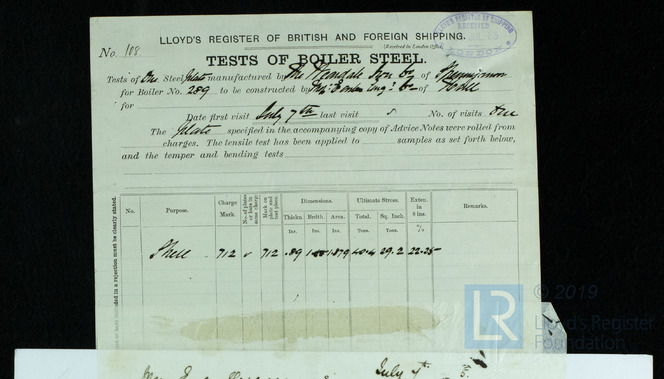 LLOYD'S REGISTER OF SHIPPING
RECEIVED
LONDON
LLOYD'S REGISTER OF BRITISH AND FOREIGN SHIPPING.
No. 108
(Received in London Office
TESTS OF BOILER STEEL.
Tests of One Steel plate manufactured by The Weardale Iron Co of Spennymoor
for Boiler No. 289 to be constructed by Engr Co of Hull
for
Date first visit July 7th last visit No. of visits
The plate specified in the accompanying copy of Advice Notes were rolled from
charges. The tensile test has been applied to samples as set forth below,
and the temper and bending tests
No. Purpose. Charge Mark. No. of plates or bars in same charge Mark on plate and test piece. Dimensions. Ultimate Stress. Exten. in 8 ins. Remarks.
Thickn. Bedth. Area. Total. Sq. Inch. %
Ins. Ins. Ins. Tons. Tons.
Shell 712 712 .89 1.879 29.2 22.25
included in a rejection must be clearly stated.
LR © 2019
Lloyd's Register
Foundation
July